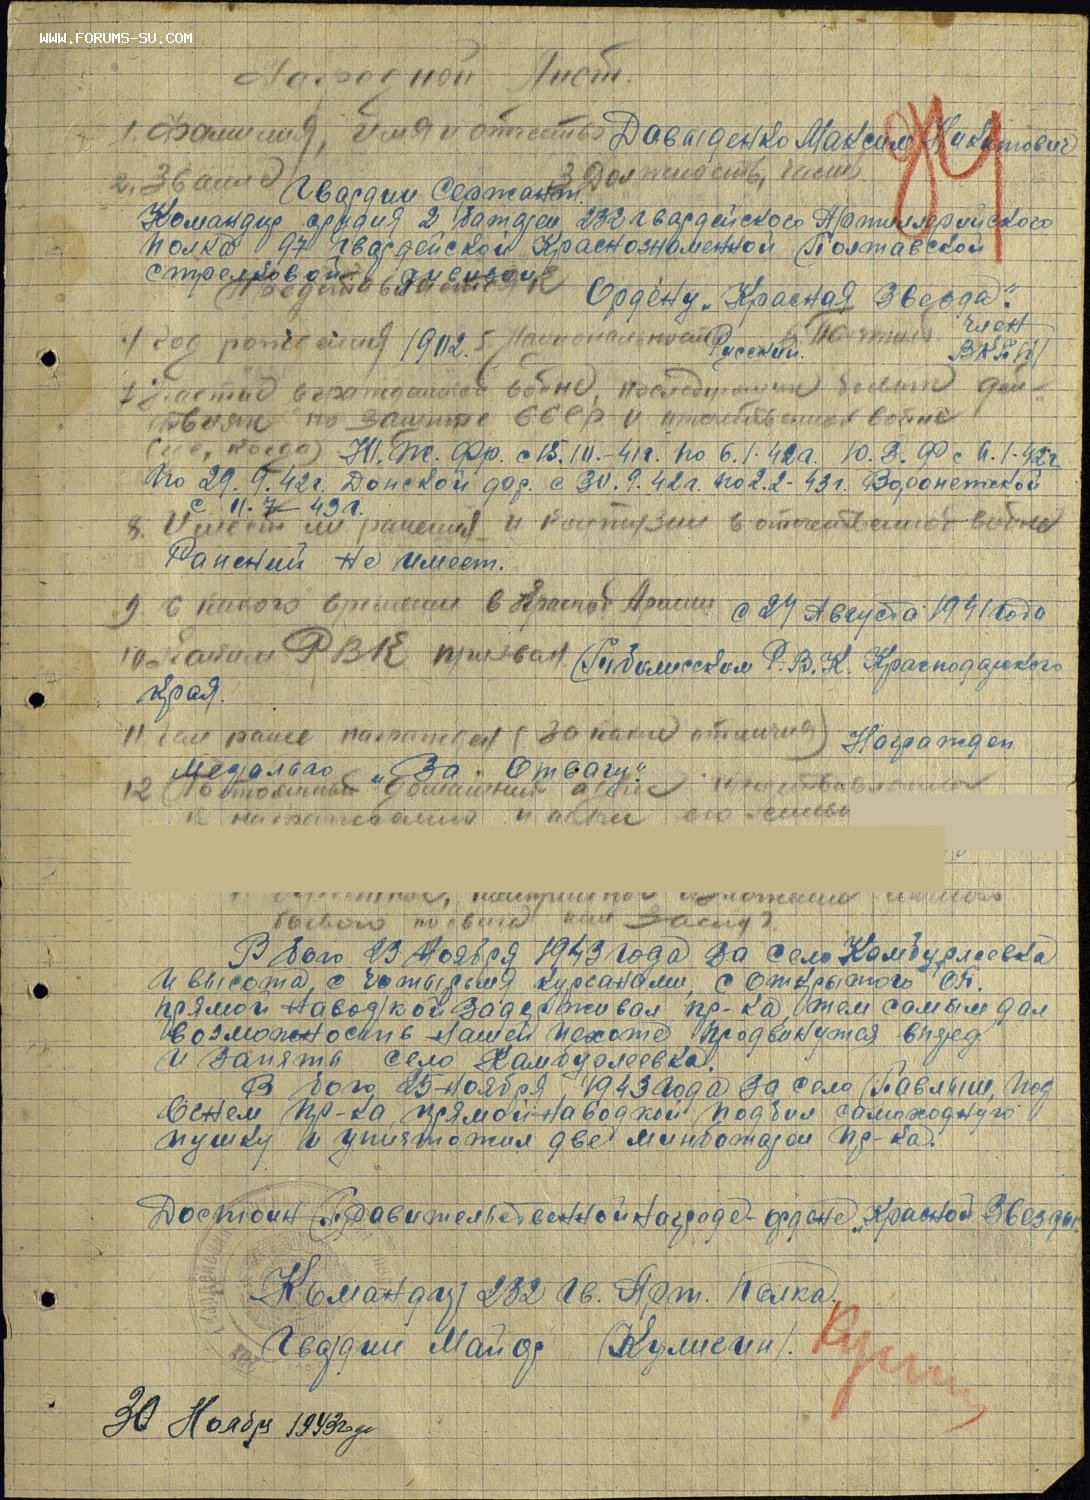 WWW.FORUMS-SU.COM
Наградной Лист.
1. Фамилия, Имя и отчество Давыденко Максим Никитович
2. Звание Гвардии Сержант. 3 Должность, часть
Командир орудия 2 батареи 232 гвардейского Артиллерийского
полка 97 Гвардейской Краснознаменной Полтавской
стрелковой дивизии
Представляется к Ордену „Красная Звезда".
4 Год рождения 1902. 5. Национальность Русский. член
ВКП
7 Участие в гражданской войне, последующих боевых дей-
ствиях по защите СССР и отечественной войне
(где, когда) Ю. Фр. с 15.10.-41г. по 6.1.42г. Ю. З. Ф с 6.1.42г
по 29.9.42г. Донской фр. с 30.9.42г. по 2.2-43г. Воронежской
с 11.7-43г.
8. Имеет ли ранения и контузии в отечественной войне
Ранений не имеет.
9. С какого времени в Красной Армии с 24 Августа 1941 года
10. Каким РВК призван Р.В.К. Краснодарского
края.
11 Чем ранее награжден (за какие отличия) Награжден
Медалью „За Отвагу".
12 Постоянный домашний адрес представляемого
к награждению и адрес его семьи
конкретное изложение личного
боевого подвига или заслуг
В бою 23 Ноября 1943 года за село Камбурлеевка
и высота, с четырьмя курсанами, с открытого ОП.
прямой наводкой задерживал пр-ка, тем самым дал
возможность нашей пехоте продвинутся вперед
и занять село Камбурлеевка.
В бою 25 Ноября 1943 года за село Павлыш, под
Огнем пр-ка прямой наводкой подбил самоходную
пушку и уничтожил две минбатареи пр-ка.
Достоин Правительственной награде-ордене „Красной Звезды".
Командир 232 Гв. Арт. Полка
Гвардии Майор
30 Ноября 1943 года